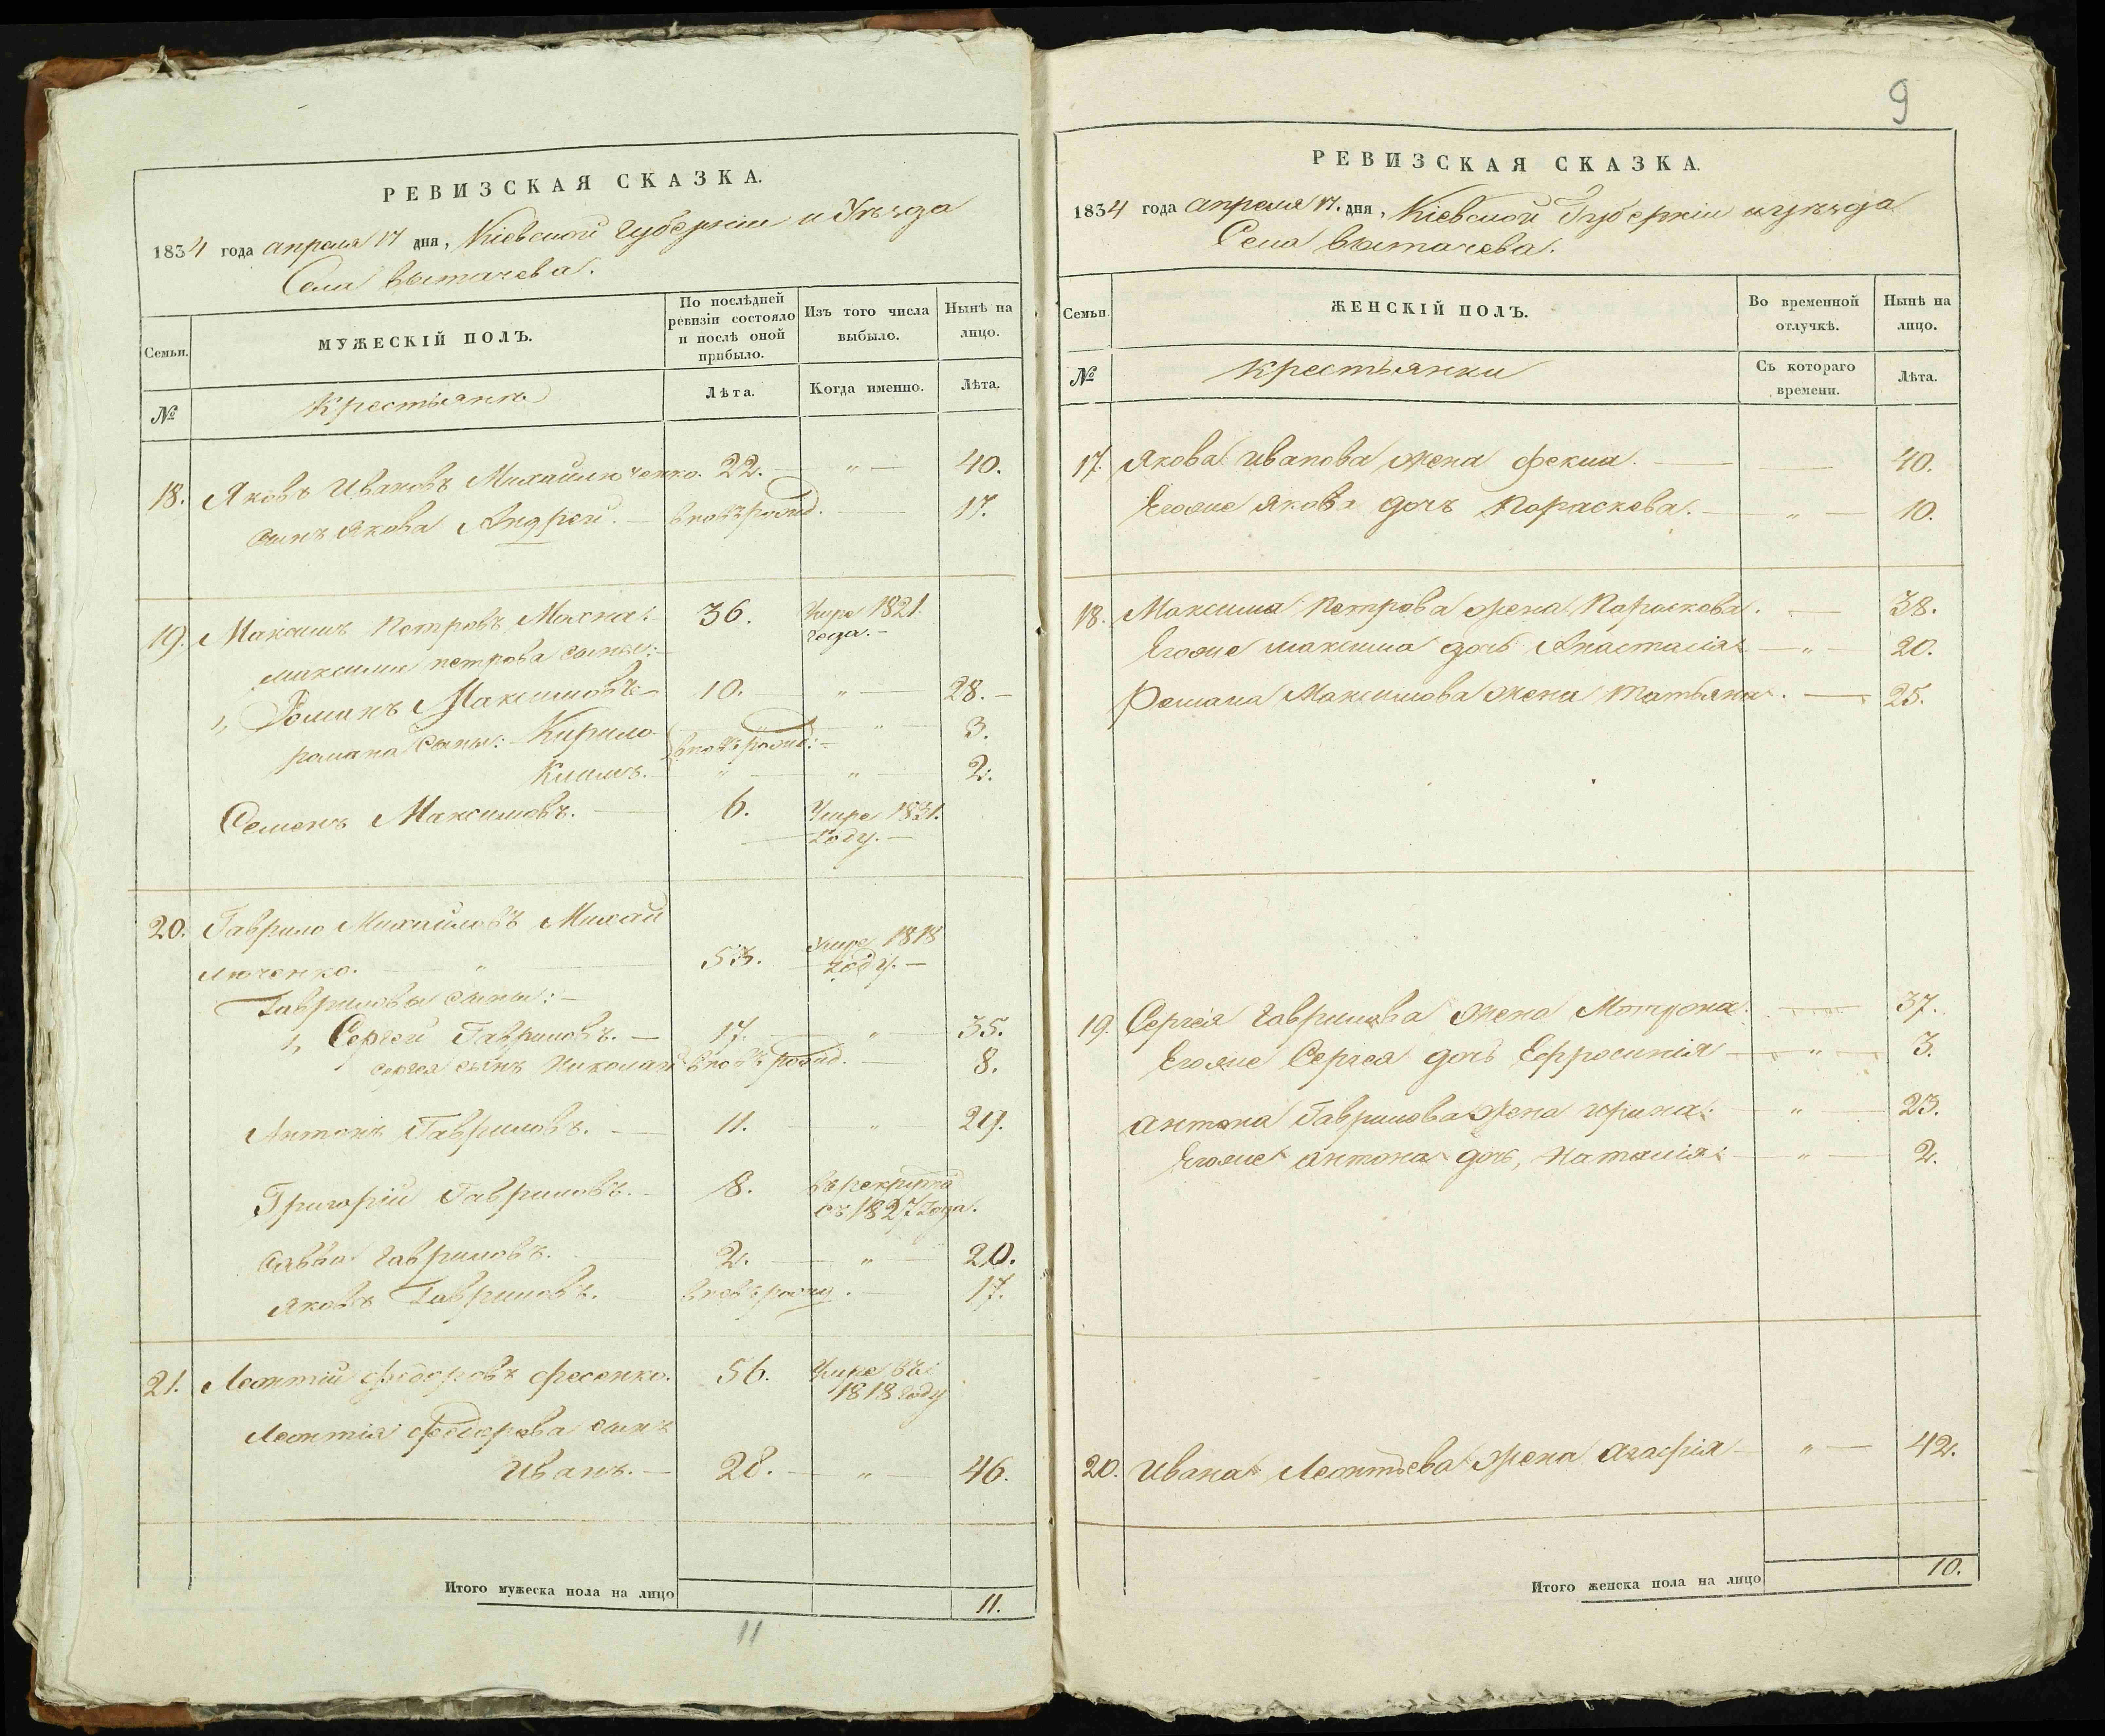 РЕВИЗСКАЯ СКАЗКА.
1834 года апреля 17 дня, Кіевской губерніи и Уезда
Села Вытачева.
Семьи.
МУЖЕСКІЙ ПОЛЪ.
По послѣдней ревизіи состояло и послѣ оной прибыло.
Изъ того числа выбыло.
Нынѣ на лицо.
№
Крестьянъ
Лѣта.
Когда именно.
Лѣта.
18. Яковъ Ивановъ Михайлюченко. 22. — „ — 40.
сынъ Якова Андрей. — вновь рожд. — 17.
19. Максимъ Петровъ Махна. 36. Умре 1821.
года. —
Максима петрова сыны: —
1, Романъ Максимовъ — 10. — „ — 28. —
романа сыны: Кирило вновь рожд: — „ — 3.
Климъ. — „ — „ — 2.
Семенъ Максимовъ. — 6. Умре 1831.
году. —
20. Гаврило Михайловъ Михай
люченко. — „ — 53. Умре 1818
году. —
Гавриловы сыны: —
1, Сергей Гавриловъ. — 17. — „ — 35.
Сергея сынъ Николай вновь рожд. — 8.
Антонъ Гавриловъ. — 11. — „ — 29.
Григорій Гавриловъ. — 8. въ рекрутѣ
съ 1827 года.
Савва Гавриловъ. — 2. — „ — 20.
Яковъ Гавриловъ. — вновь рожд. — 17.
21. Леонтій Федоровъ Фесенко. 56. Умре въ
1818 году
Леонтія Федорова сынъ
Иванъ. — 28. — „ — 46.
Итого мужеска пола на лицо 11.
11
9
РЕВИЗСКАЯ СКАЗКА.
1834 года апреля 17. дня, Кіевской Губерніи и уезда
Села Вытачева.
Семьи.
ЖЕНСКІЙ ПОЛЪ.
Во временной отлучкѣ.
Нынѣ на лицо.
№
Крестьянки
Съ котораго времени.
Лѣта.
17. Якова Иванова жена Фекла. — 40.
Егоже Якова дочь Параскева. — „ — 10.
18. Максима Петрова жена Параскева. — 38.
Егоже максима дочь Анастасія — „ — 20.
Романа Максимова жена Татьяна. — 25.
19. Сергея Гаврилова жена Мотрона. — 37.
Егоже Сергея дочь Ефросинія — „ — 3.
Антона Гаврилова жена Ирина. — „ — 23.
Егоже Антона дочь, Наталія: — „ — 2.
20. Ивана Леонтьева жена Агафія — „ — 42.
Итого женска пола на лицо 10.